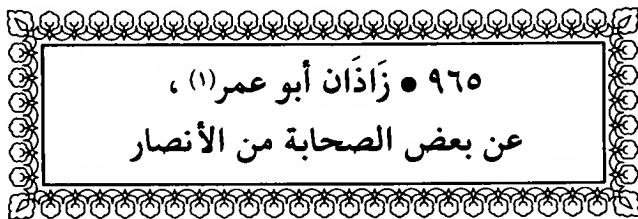 ٩٦٥ • زَاذَان أبو عمر(١) ،
عن بعض الصحابة من الأنصار